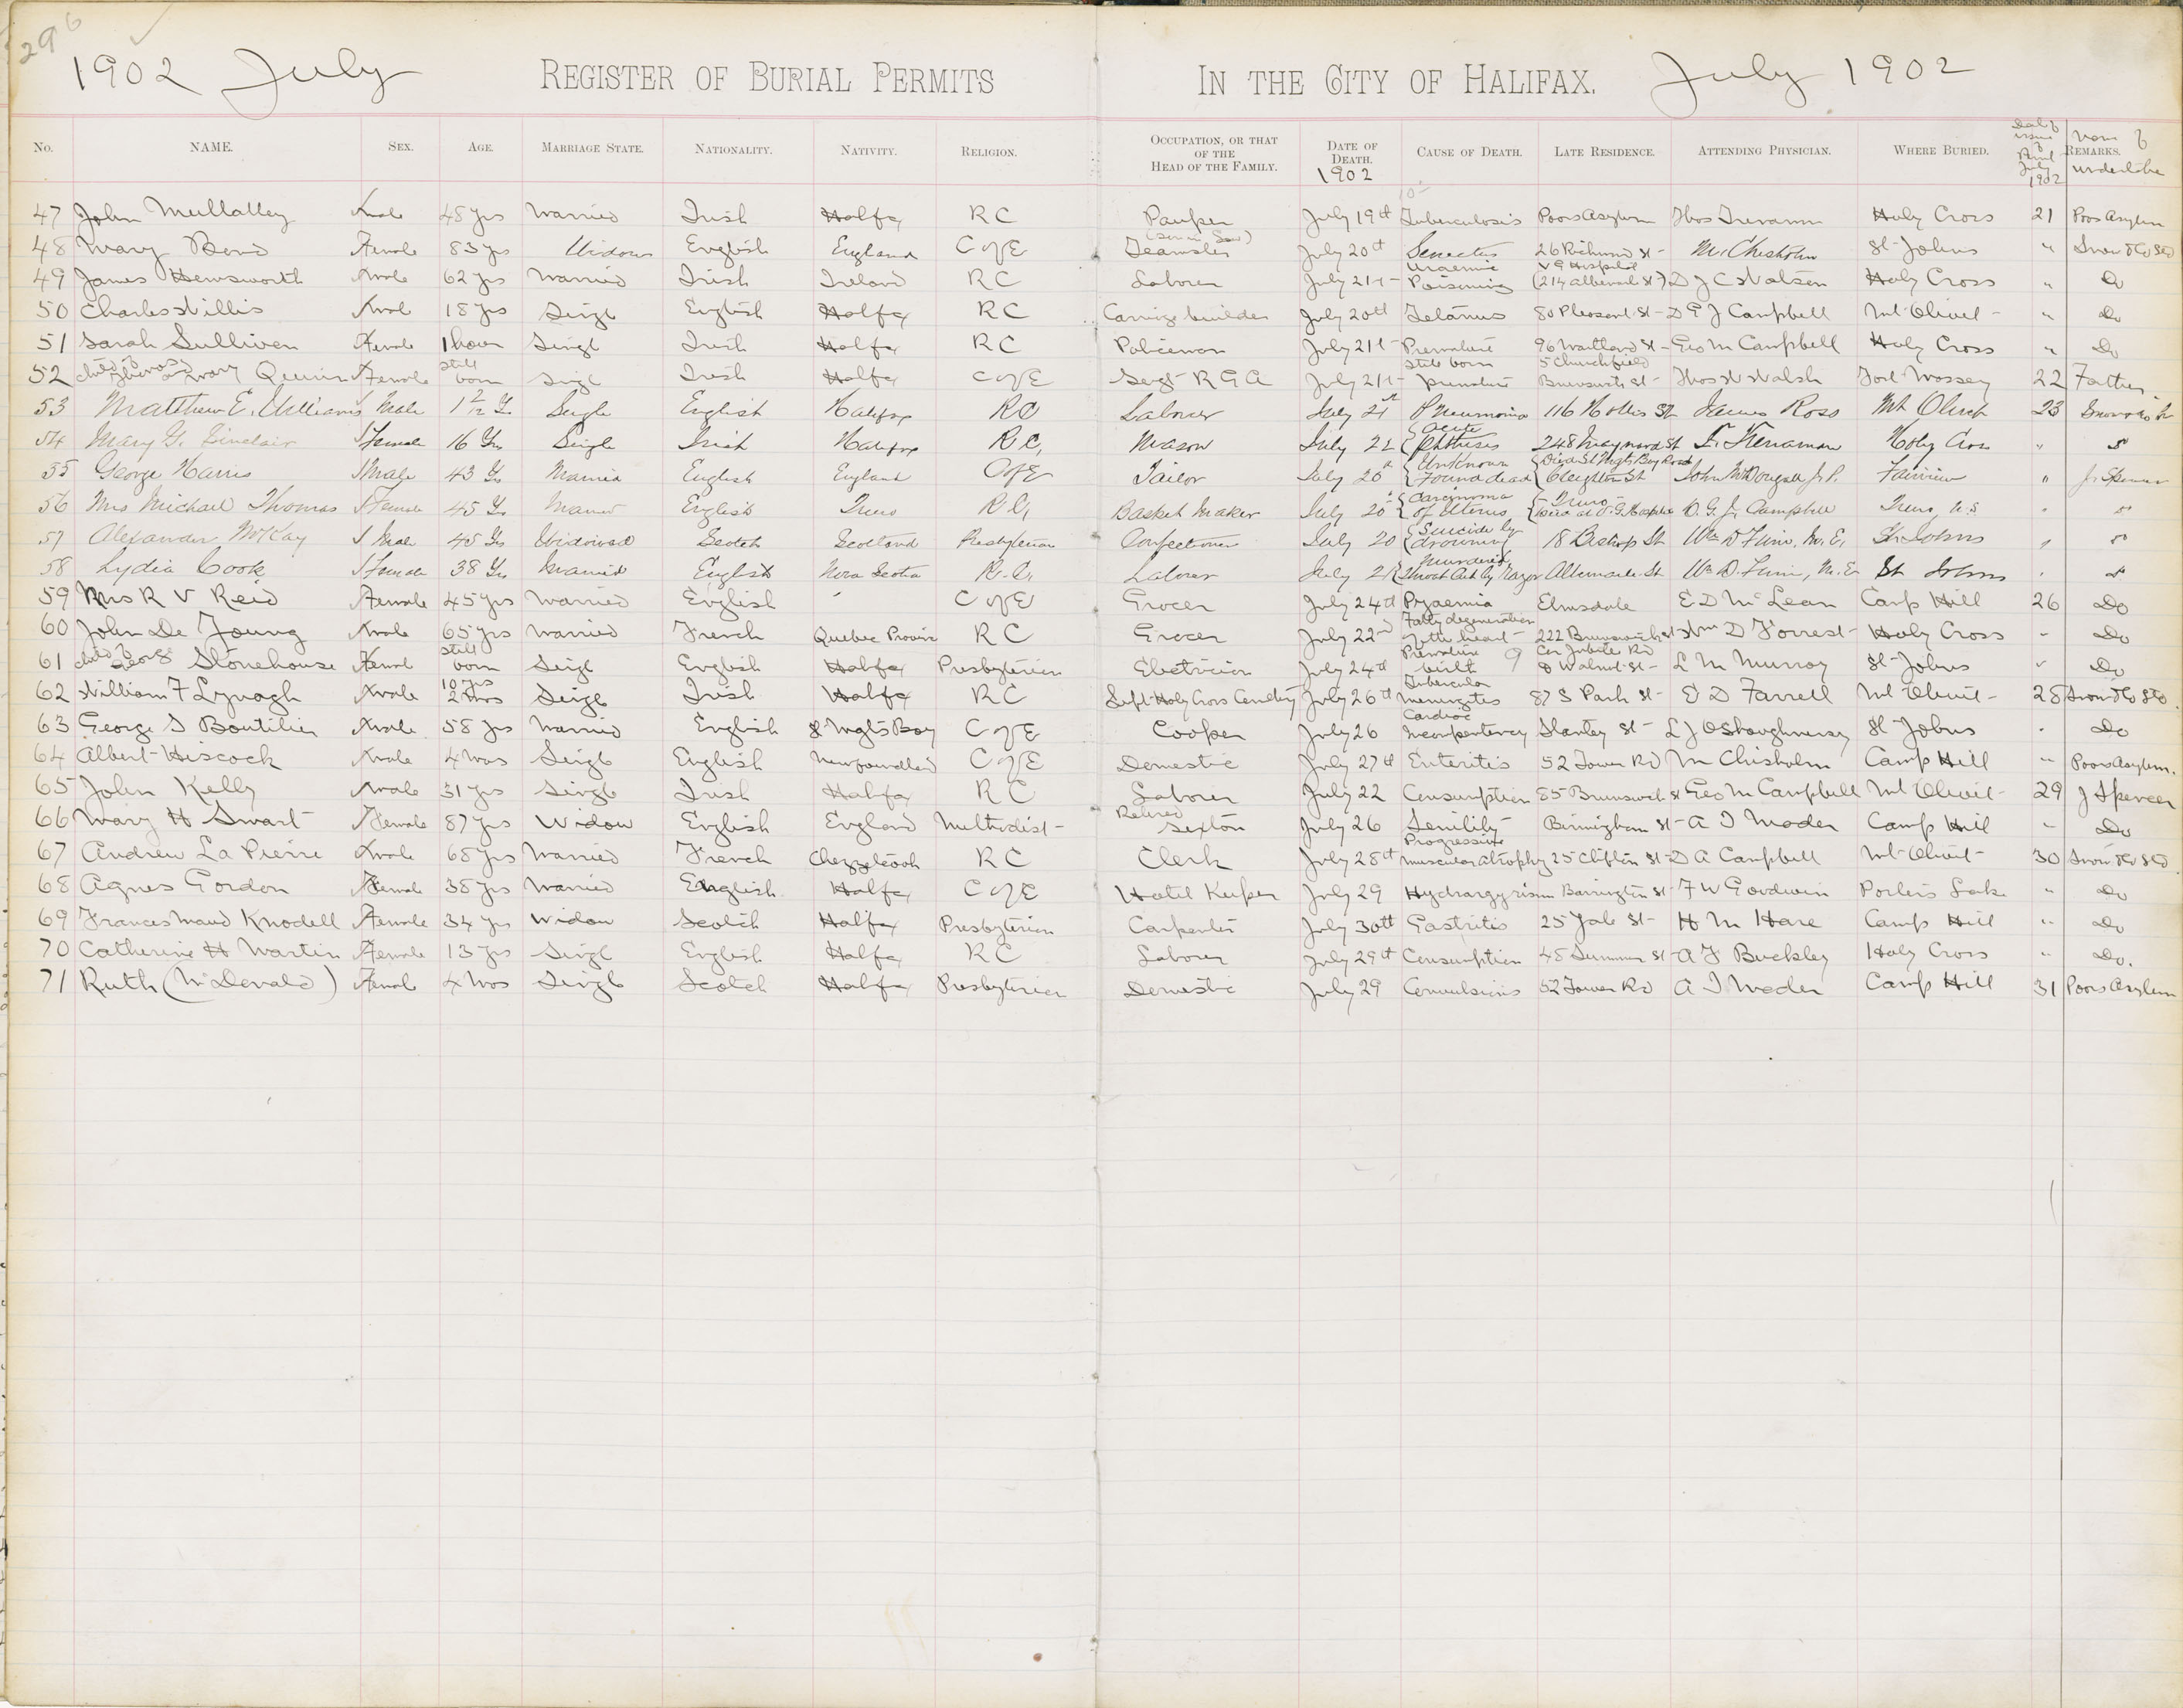 296
1902 July REGISTER OF BURIAL PERMITS IN THE CITY OF HALIFAX. July 1902
No. NAME. SEX. AGE. MARRIAGE STATE. NATIONALITY. NATIVITY. RELIGION. OCCUPATION, OR THAT OF THE HEAD OF THE FAMILY. DATE OF DEATH. 1902 CAUSE OF DEATH. LATE RESIDENCE. ATTENDING PHYSICIAN. WHERE BURIED. Date of issue of July 1902 REMARKS. Name of undertaker
47 John Mullalley Male 48 yrs Married Irish Halifax RC Pauper July 19th Tuberculosis Poors Asylum Thos Trenaman Holy Cross 21 Poors Asylum
48 Mary Bond Female 83 yrs Widow English England C of E Teamster July 20th Senectus 26 Richmond St M Chisholm St Johns " Snow & Co
49 James Hemsworth Male 62 yrs Married Irish Ireland RC Laborer July 21st Uraemic Poisoning V G Hospital (214 Albemarle St) D J C Watson Holy Cross " Do
50 Charles Willis Male 18 yrs Single English Halifax RC Carriage builder July 20th Tetanus 80 Pleasant St D G J Campbell Mt Olivet " Do
51 Sarah Sullivan Female 1 hour Single Irish Halifax RC Policeman July 21st Premature 96 Maitland St Geo M Campbell Holy Cross " Do
52 Child of Thomas & Mary Quinn Female Still born Single Irish Halifax C of E Sergt R G A July 21st Still born premature 5 Churchfield Brunswick St Thos W Walsh Fort Massey 22 Father
53 Matthew E. Williams Male 1 2/12 Yr Single English Halifax RC Laborer July 21st Pneumonia 116 Hollis St James Ross Mt Olivet 23 Snow & Co
54 Mary G. Sinclair Female 16 Yrs Single Irish Halifax R.C. Mason July 22 Acute Phthisis 248 Maynard St T. Trenaman Holy Cross " "
55 George Harris Male 43 Yrs Married English England C of E Tailor July 20th Unknown Found dead Died St Mgts Bay Road Creighton St John McDougall J.P. Fairview " J. Spencer
56 Mrs Michael Thomas Female 45 Yrs Married English Truro R.C. Basket Maker July 20th Carcinoma of Uterus Truro Died at V.G. Hospital D. G. J. Campbell Truro, N.S " "
57 Alexander McKay Male 45 Yrs Widowed Scotch Scotland Presbyterian Confectioner July 20 Suicide by drowning 18 Bishop St Wm D Finn, M.E. St. Johns " "
58 Lydia Cook Female 38 Yrs Married English Nova Scotia R.C. Laborer July 21 Murdered Throat Cut by Razor Albemarle St Wm D. Finn, M.E. St Johns " "
59 Mrs R V Reid Female 45 yrs Married English C of E Grocer July 24th Pyaemia Elmsdale E D McLean Camp Hill 26 Do
60 John De Young Male 65 yrs Married French Quebec Province RC Grocer July 22nd Fatty degeneration of the heart 222 Brunswick St Wm D Forrest Holy Cross " Do
61 Child of George Stonehouse Female Still born Single English Halifax Presbyterian Electrician July 24th Premature birth Cor Jubilee Rd & Walnut St L M Murray St Johns " Do
62 William F Lynagh Male 10 yrs 2 mos Single Irish Halifax RC Supt Holy Cross Cemetery July 26th Tubercular meningitis 87 S Park St E D Farrell Mt Olivet 28 Snow & Co
63 George S Boutilier Male 58 yrs Married English St Mgts Bay C of E Cooper July 26 Cardiac incompetency Stanley St L J OShaughnessy St Johns " Do
64 Albert Hiscock Male 4 mos Single English Newfoundland C of E Domestic July 27th Enteritis 52 Tower Rd M Chisholm Camp Hill " Poors Asylum.
65 John Kelly Male 31 yrs Single Irish Halifax RC Laborer July 22 Consumption 85 Brunswick St Geo M Campbell Mt Olivet 29 J Spencer
66 Mary H Swart Female 87 yrs Widow English England Methodist Retired Sexton July 26 Senility Birmingham St A I Mader Camp Hill " Do
67 Andrew La Pierre Male 68 yrs Married French Chezzetcook RC Clerk July 28th Progressive muscular atrophy 25 Clifton St D A Campbell Mt Olivet 30 Snow & Co
68 Agnes Gordon Female 38 yrs Married English Halifax C of E Hotel Keeper July 29 Hydrargyrism Barrington St F W Goodwin Porters Lake " Do
69 Frances Maud Knodell Female 34 yrs Widow Scotch Halifax Presbyterian Carpenter July 30th Gastritis 25 Yale St H M Hare Camp Hill " Do
70 Catherine H Martin Female 13 yrs Single English Halifax RC Laborer July 29th Consumption 48 Summer St A F Buckley Holy Cross " Do.
71 Ruth (McDonald) Female 4 Mos Single Scotch Halifax Presbyterian Domestic July 29 Convulsions 52 Tower Rd A I Mader Camp Hill 31 Poors Asylum